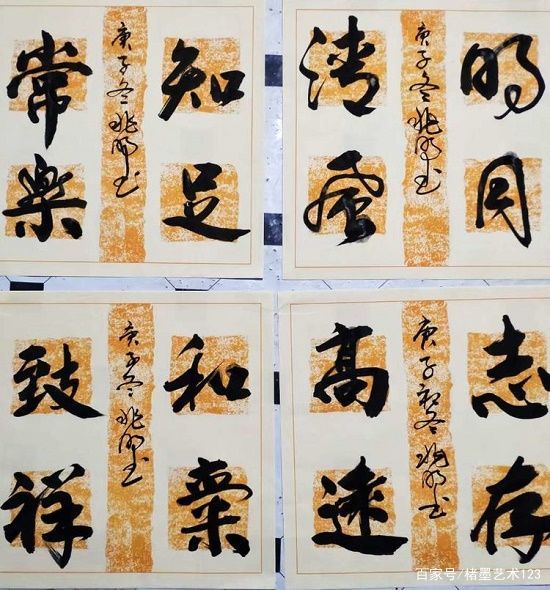 知足
常樂
庚子冬兆明书
明月
清风
庚子冬兆明书
和氣
致祥
庚子冬兆明书
志存
高遠
庚子初冬兆明书
百家号/楮墨艺术123